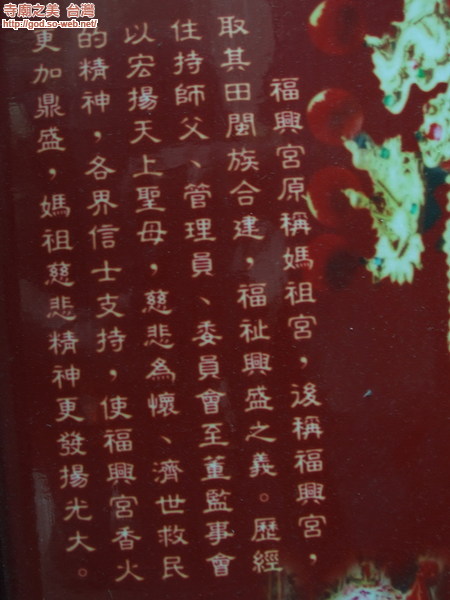 寺廟之美 台灣
http://god.so-web.net/
福興宮原稱媽祖宮，後稱福興宮，
取其田閩族合建，福祉興盛之義。歷經
住持師父、管理員、委員會至董監事會
以宏揚天上聖母，慈悲為懷、濟世救民
的精神，各界信士支持，使福興宮香火
更加鼎盛，媽祖慈悲精神更發揚光大。